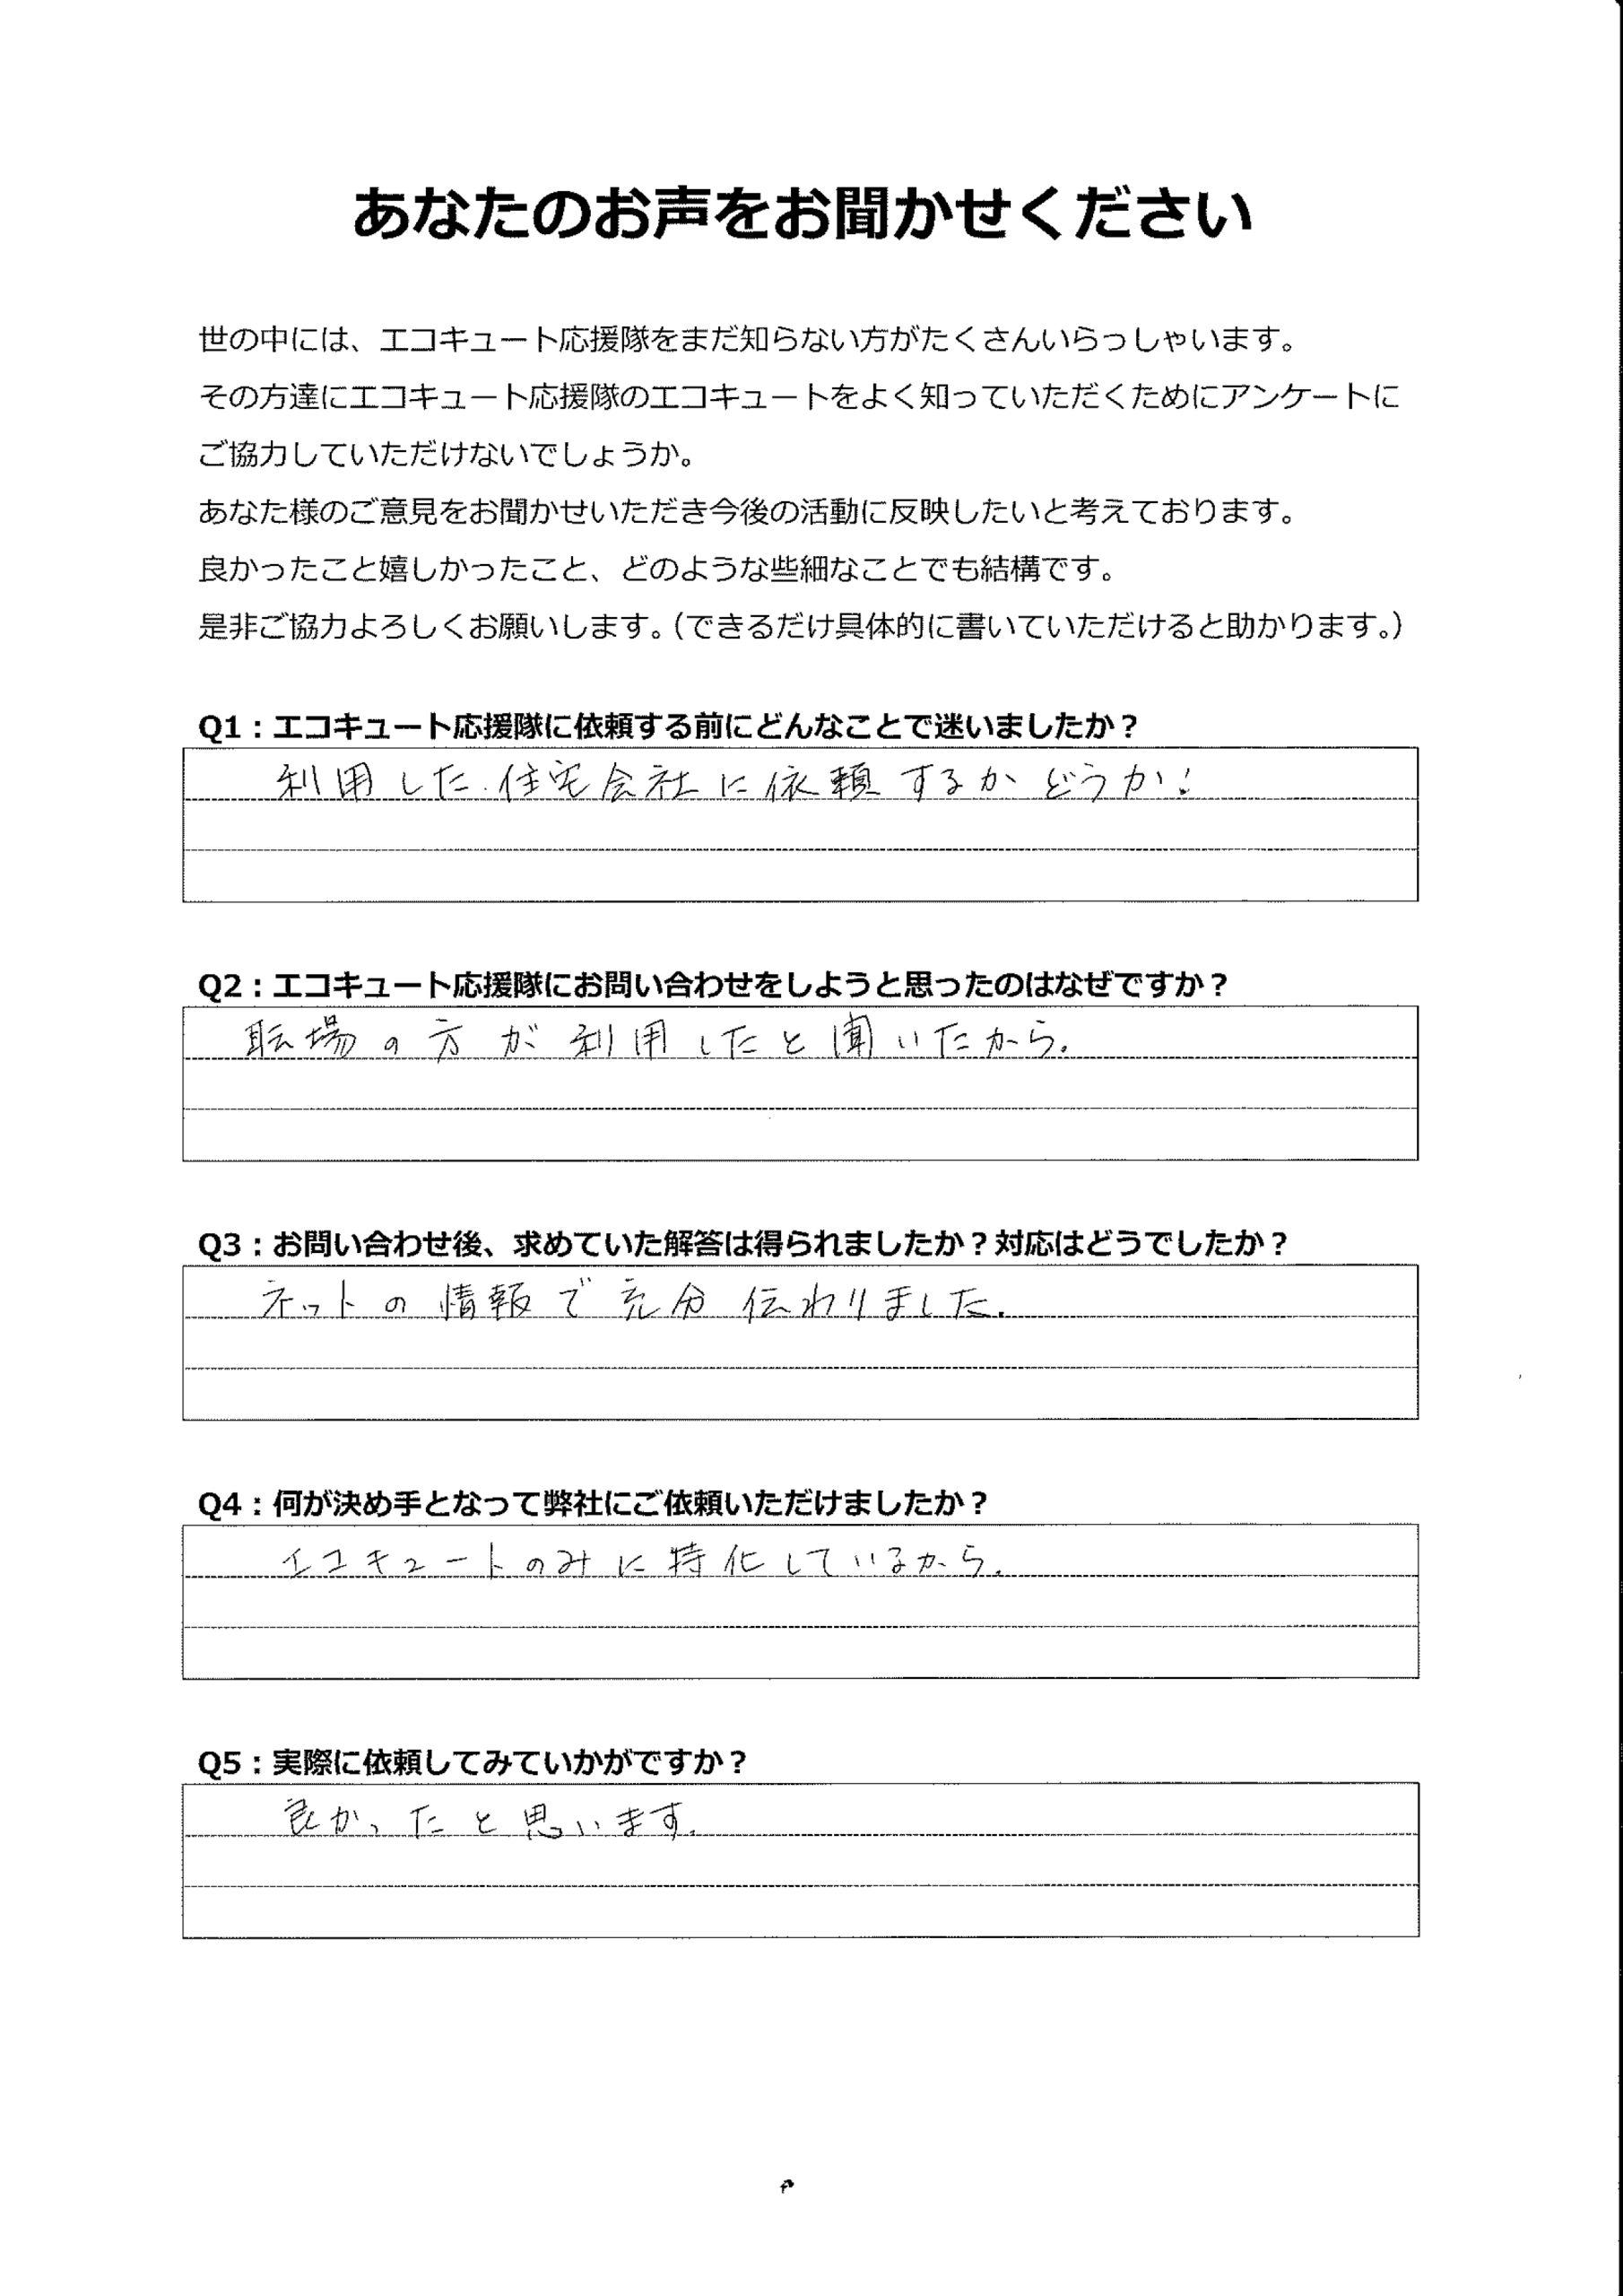 あなたのお声をお聞かせください
世の中には、エコキュート応援隊をまだ知らない方がたくさんいらっしゃいます。
その方達にエコキュート応援隊のエコキュートをよく知っていただくためにアンケートに
ご協力していただけないでしょうか。
あなた様のご意見をお聞かせいただき今後の活動に反映したいと考えております。
良かったこと嬉しかったこと、どのような些細なことでも結構です。
是非ご協力よろしくお願いします。（できるだけ具体的に書いていただけると助かります。）
Q1：エコキュート応援隊に依頼する前にどんなことで迷いましたか？
利用した住宅会社に依頼するかどうか！
Q2：エコキュート応援隊にお問い合わせをしようと思ったのはなぜですか？
職場の方が利用したと聞いたから.
Q3：お問い合わせ後、求めていた解答は得られましたか？対応はどうでしたか？
ネットの情報で充分伝わりました.
Q4：何が決め手となって弊社にご依頼いただけましたか？
エコキュートのみに特化しているから.
Q5：実際に依頼してみていかがですか？
良かったと思います.